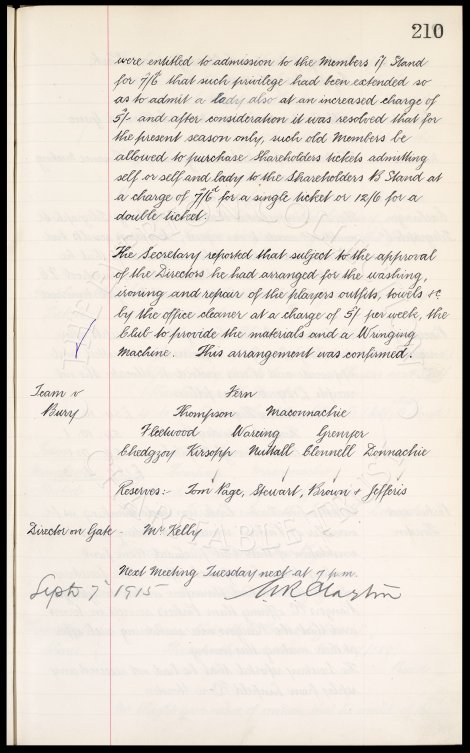 210
were entitled to admission to the Members 1/ Stand
for 7/6 that such privilege had been extended so
as to admit a lady also at an increased charge of
5/- and after consideration it was resolved that for
the present season only, such old Members be
allowed to purchase Shareholders tickets admitting
self or self and lady to the Shareholders B Stand at
a charge of 7/6 for a single ticket or 12/6 for a
double ticket.
The Secretary reported that subject to the approval
of the Directors he had arranged for the washing,
ironing and repair of the players outfits, towels &c
by the office cleaner at a charge of 5/ per week, the
Club to provide the materials and a Wringing
Machine. This arrangement was confirmed.
Team v Fern
Bury Thompson Maconnachie
Fleetwood Wareing Grenyer
Chedgzoy Kirsopp Nuttall Clennell Donnachie
Reserves:- Tom Page, Stewart, Brown & Jefferis
Director on Gate - Mr Kelly
Next Meeting Tuesday next at 7 p.m.
Sept 7 1915 W R Clayton